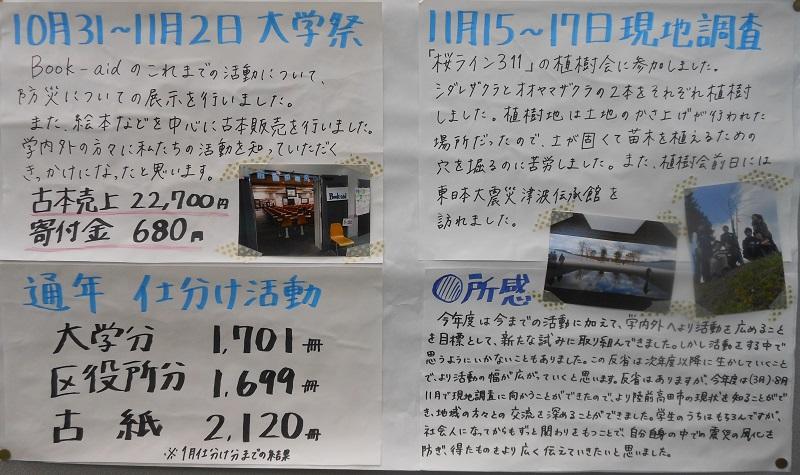 10月31～11月2日 大学祭
Book-aidのこれまでの活動について、
防災についての展示を行いました。
また、絵本などを中心に古本販売を行いました。
学内外の方々に私たちの活動を知っていただく
きっかけになったと思います。
古本売上 22,700円
寄付金 680円
Book-aid
11月15～17日 現地調査
「桜ライン311」の植樹会に参加しました。
シダレザクラとオオヤマザクラの2本をそれぞれ植樹
しました。植樹地は土地のかさ上げが行われた
場所だったので、土が固くて苗木を植えるための
穴を掘るのに苦労しました。また、植樹会前日には
東日本大震災津波伝承館を
訪れました。
通年 仕分け活動
大学分 1,701冊
区役所分 1,699冊
古紙 2,120冊
※1月仕分け分までの結果
所感
今年度は今までの活動に加えて、学内外へより活動を広めること
を目標として、新たな試みに取り組んできました。しかし活動をする中で
思うようにいかないこともありました。この反省は次年度以降に生かしていくこと
で、より活動の幅が広がっていくと思います。反省はありますが、今年度は(3月)・8月
11月で現地調査に向かうことができたので、より陸前高田市の現状を知ることがで
き、地域の方々との交流を深めることができました。学生のうちはもちろんですが、
社会人になってからもずっと関わりをもつことで、自分自身の中での震災の風化を
防ぎ、得たものをより広く伝えていきたいと思いました。